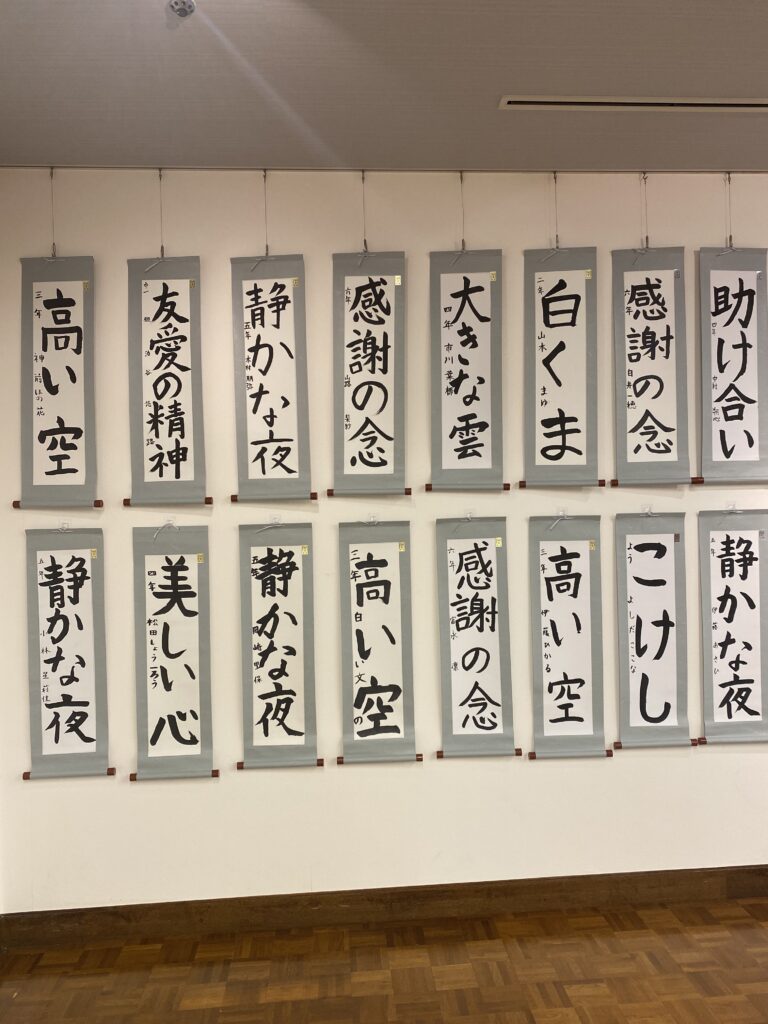 助け合い
四年
感謝の念
六年
白くま
二年
山本 まゆ
大きな雲
四年 市川
感謝の念
六年
静かな夜
五年 木村
友愛の精神
中一
高い空
三年 神前ほの花
静かな夜
五年 伊藤
こけし
よう よしだここな
高い空
三年 伊藤ひかる
感謝の念
六年 富永 凛
高い空
三年 白い文の
静かな夜
五年 岡崎里保
美しい心
四年 松田しょうたろう
静かな夜
五年 小林